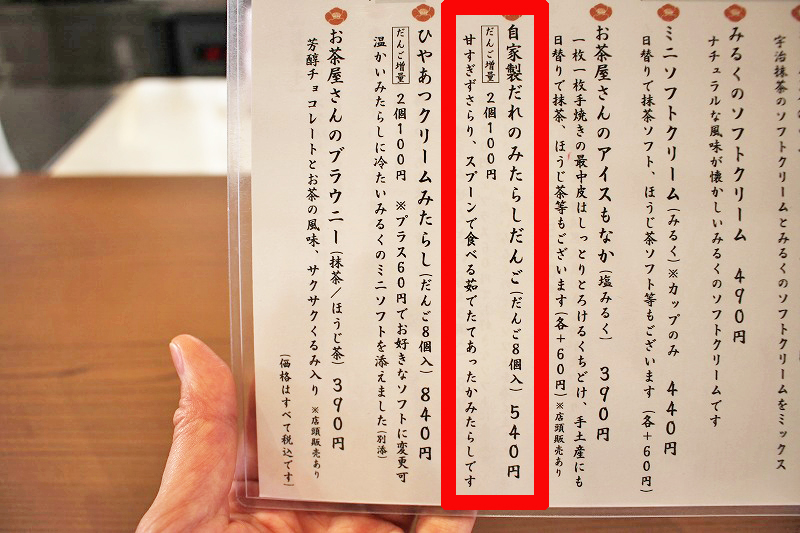 宇治抹茶のソフトクリームとみるくのソフトクリームをミックス
みるくのソフトクリーム 490円
ナチュラルな風味が懐かしいみるくのソフトクリームです
ミニソフトクリーム(みるく)※カップのみ 440円
日替りで抹茶ソフト、ほうじ茶ソフト等もございます(各+60円)
お茶屋さんのアイスもなか(塩みるく) 390円
一枚一枚手焼きの最中皮はしっとりとろけるくちどけ、手土産にも
日替りで抹茶、ほうじ茶等もございます(各+60円)※店頭販売あり
自家製だれのみたらしだんご(だんご8個入) 540円
だんご増量 2個100円
甘すぎずさらり、スプーンで食べる茹でたてあったかみたらしです
ひやあつクリームみたらし(だんご8個入) 840円
だんご増量 2個100円 ※プラス60円でお好きなソフトに変更可
温かいみたらしに冷たいみるくのミニソフトを添えました(別添)
お茶屋さんのブラウニー(抹茶/ほうじ茶) 390円
芳醇チョコレートとお茶の風味、サクサクくるみ入り ※店頭販売あり
(価格はすべて税込です)